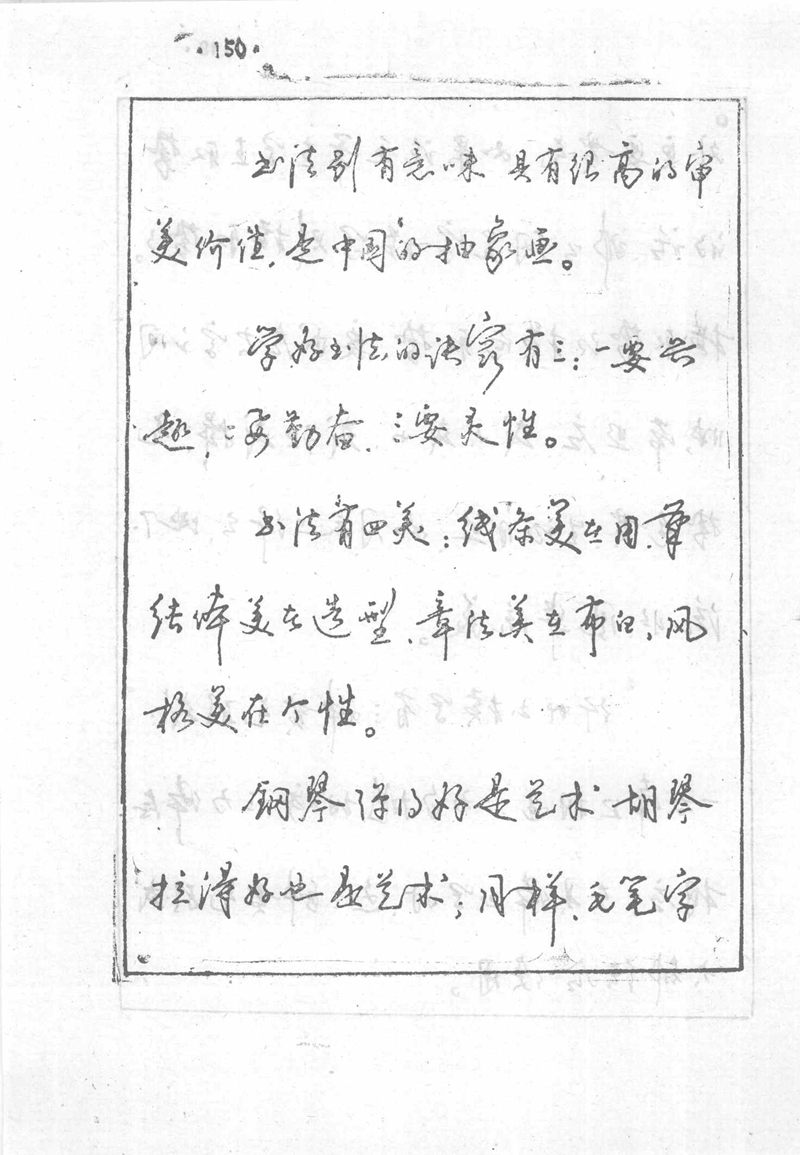 ·150·
书法别有意味 具有很高的审
美价值,是中国的抽象画。
学好书法的诀窍有三:一要兴
趣,二要勤奋,三要灵性。
书法有四美:线条美在用笔
结体美在造型,章法美在布白,风
格美在个性。
钢琴弹得好是艺术 胡琴
拉得好也是艺术;同样,毛笔字